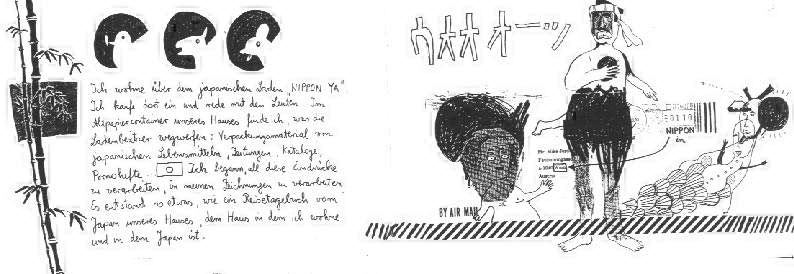 Ich wohne über dem japanischen Laden „NIPPON YA“
Ich kaufe dort ein und rede mit den Leuten. Im
Altpapiercontainer unseres Hauses finde ich, was die
Ladenbesitzer wegwerfen: Verpackungsmaterial von
japanischen Lebensmitteln, Zeitungen, Kataloge,
Pornohefte. Ich begann, all diese Eindrücke
zu verarbeiten, in meinen Zeichnungen zu verarbeiten.
Es entstand so etwas, wie ein Reisetagebuch vom
Japan unseres Hauses, dem Haus in dem ich wohne
und in dem Japan ist.
NIPPON
BY AIR MAIL